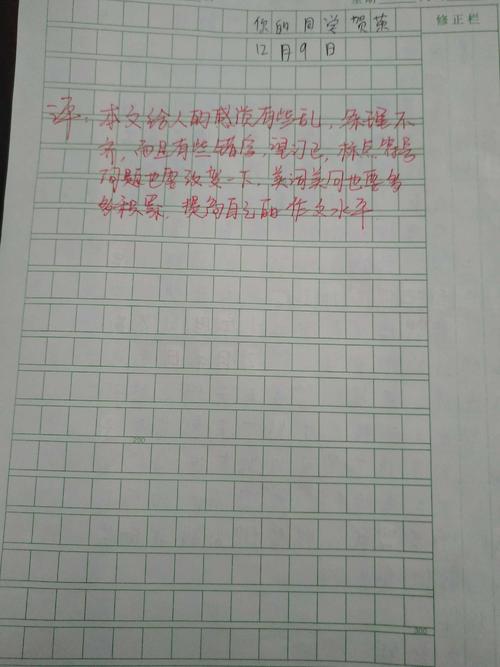 修正栏
你的同学贺荣
12月9日
评：本文给人的感觉有些乱，条理不
齐，而且有些错字，望订正，标点符号
问题也要改变一下，美词美句也要多
多积累，提高自己的作文水平
200
300